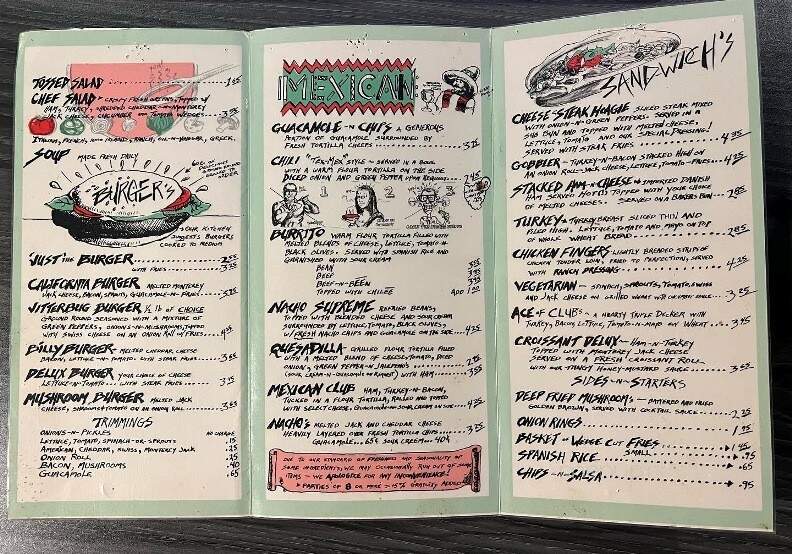 TOSSED SALAD 1.65
CHEF SALAD CRISPY FRESH GREENS, TOPPED W/
HAM, TURKEY, SHREDDED CHEDDAR-N-MONTEREY
JACK CHEESE, CUCUMBER AND TOMATO WEDGES
ITALIAN, FRENCH, 1000 ISLAND, RANCH, OIL-N-VINEGAR, GREEK.
SOUP MADE FRESH DAILY
BURGER'S
OUR KITCHEN
SUGGESTS BURGERS
COOKED TO MEDIUM
JUST THE BURGER 2.55
WITH FRIES
CALIFORNIA BURGER MELTED MONTEREY
JACK CHEESE, BACON, SPROUTS, GUACAMOLE-N-FRIES
JITTERBUG BURGER ½ LB OF CHOICE
GROUND ROUND SEASONED WITH A MIXTURE OF
GREEN PEPPERS, ONIONS-N-MUSHROOMS, TOPPED
WITH SWISS CHEESE ON AN ONION ROLL W/ FRIES
BILLY BURGER MELTED CHEDDAR CHEESE
BACON, LETTUCE-N-TOMATO WITH STEAK FRIES
DELUX BURGER YOUR CHOICE OF CHEESE
LETTUCE-N-TOMATO WITH STEAK FRIES
MUSHROOM BURGER MELTED JACK
CHEESE, SHROOMS & TOMATO ON AN ONION ROLL 3.65
TRIMMINGS
ONIONS-N-PICKLES NO CHARGE
LETTUCE, TOMATO, SPINACH-OR-SPROUTS .15
AMERICAN, CHEDDAR, SWISS, MONTEREY JACK .25
ONION ROLL .25
BACON, MUSHROOMS .40
GUACAMOLE .65
MEXICAN
GUACAMOLE-N-CHIPS A GENEROUS
PORTION OF GUACAMOLE SURROUNDED BY
FRESH TORTILLA CHEEPS
CHILI "TEX-MEX" STYLE - SERVED IN A BOWL
WITH A WARM FLOUR TORTILLA ON THE SIDE
DICED ONION AND GREEN PEPPER UPON REQUEST
1 2 3
BURRITO WARM FLOUR TORTILLA FILLED WITH
MELTED BLENDS OF CHEESE, LETTUCE, TOMATO-N-
BLACK OLIVES. SERVED WITH SPANISH RICE AND
GARNISHED WITH SOUR CREAM
BEAN
BEEF
BEEF-N-BEEN
TOPPED WITH CHILEE ADD 1.20
NACHO SUPREME REFRIED BEANS,
TOPPED WITH BLENDED CHEESE AND SOUR CREAM
SURROUNDED BY LETTUCE, TOMATO, BLACK OLIVES,
FRESH NACHO CHIPS AND GUACAMOLE ON THE SIDE 4.25
QUESADILLA GRILLED FLOUR TORTILLA FILLED
WITH A MELTED BLEND OF CHEESE, TOMATO, DICED
ONION, GREEN PEPPER-N-JALEPENO'S
(SOUR CREAM-N-GUACAMOLE UPON REQUEST) WITH HAM
MEXICAN CLUB HAM, TURKEY-N-BACON,
TUCKED IN A FLOUR TORTILLA, ROLLED AND TOPPED
WITH SELECT CHEESE, GUACAMOLE AND SOUR CREAM ON SIDE
NACHO'S MELTED JACK AND CHEDDAR CHEESE
HEAVILY LAYERED OVER FRESH TORTILLA CHIPS
GUACAMOLE...65¢ SOUR CREAM...40¢
DUE TO OUR STANDARD OF FRESHNESS AND SEASONALITY OF
SOME INGREDIENTS, WE MAY OCCASIONALLY RUN OUT OF SOME
ITEMS - WE APOLOGIZE FOR ANY INCONVENIENCE!
PARTIES OF 8 OR MORE - 15% GRATUITY ADDED
SANDWICH'S
CHEESE-STEAK HOAGIE SLICED STEAK MIXED
WITH ONION-N-GREEN PEPPERS. SERVED IN A
SUB BUN AND TOPPED WITH MELTED CHEESE,
LETTUCE, TOMATO AND OUR SPECIAL DRESSING!
SERVED WITH STEAK FRIES 4.95
GOBBLER TURKEY-N-BACON STACKED HIGH ON
AN ONION ROLL-JACK CHEESE, LETTUCE, TOMATO-FRIES
STACKED HAM-n-CHEESE IMPORTED DANISH
HAM SERVED HOT!! TOPPED WITH YOUR CHOICE
OF MELTED CHEESE. SERVED ON A BAKERS BUN
TURKEY TURKEY BREAST SLICED THIN AND
PILED HIGH. LETTUCE, TOMATO AND MAYO ON TOP
OF WHOLE WHEAT BREAD
CHICKEN FINGERS LIGHTLY BREADED STRIPS OF
CHICKEN TENDER LOIN FRIED TO PERFECTION, SERVED
WITH RANCH DRESSING 4.25
VEGETARIAN SPINACH, SPROUTS, TOMATO, SWISS
AND JACK CHEESE ON GRILLED WHEAT WITH
ACE OF CLUBS A HEARTY TRIPLE DECKER WITH
TURKEY, BACON, LETTUCE, TOMATO-N-MAYO ON WHEAT
CROISSANT DELUX HAM-N-TURKEY
TOPPED WITH MONTEREY JACK CHEESE
SERVED ON A FRESH CROISSANT ROLL
WITH OUR TANGY HONEY-MUSTARD SAUCE
SIDES-N-STARTERS
DEEP FRIED MUSHROOM'S BATTERED AND FRIED
GOLDEN BROWN, SERVED WITH COCKTAIL SAUCE 2.25
ONION RINGS
BASKET WEDGE CUT FRIES 1.45
SMALL .95
SPANISH RICE .65
CHIPS-N-SALSA .95